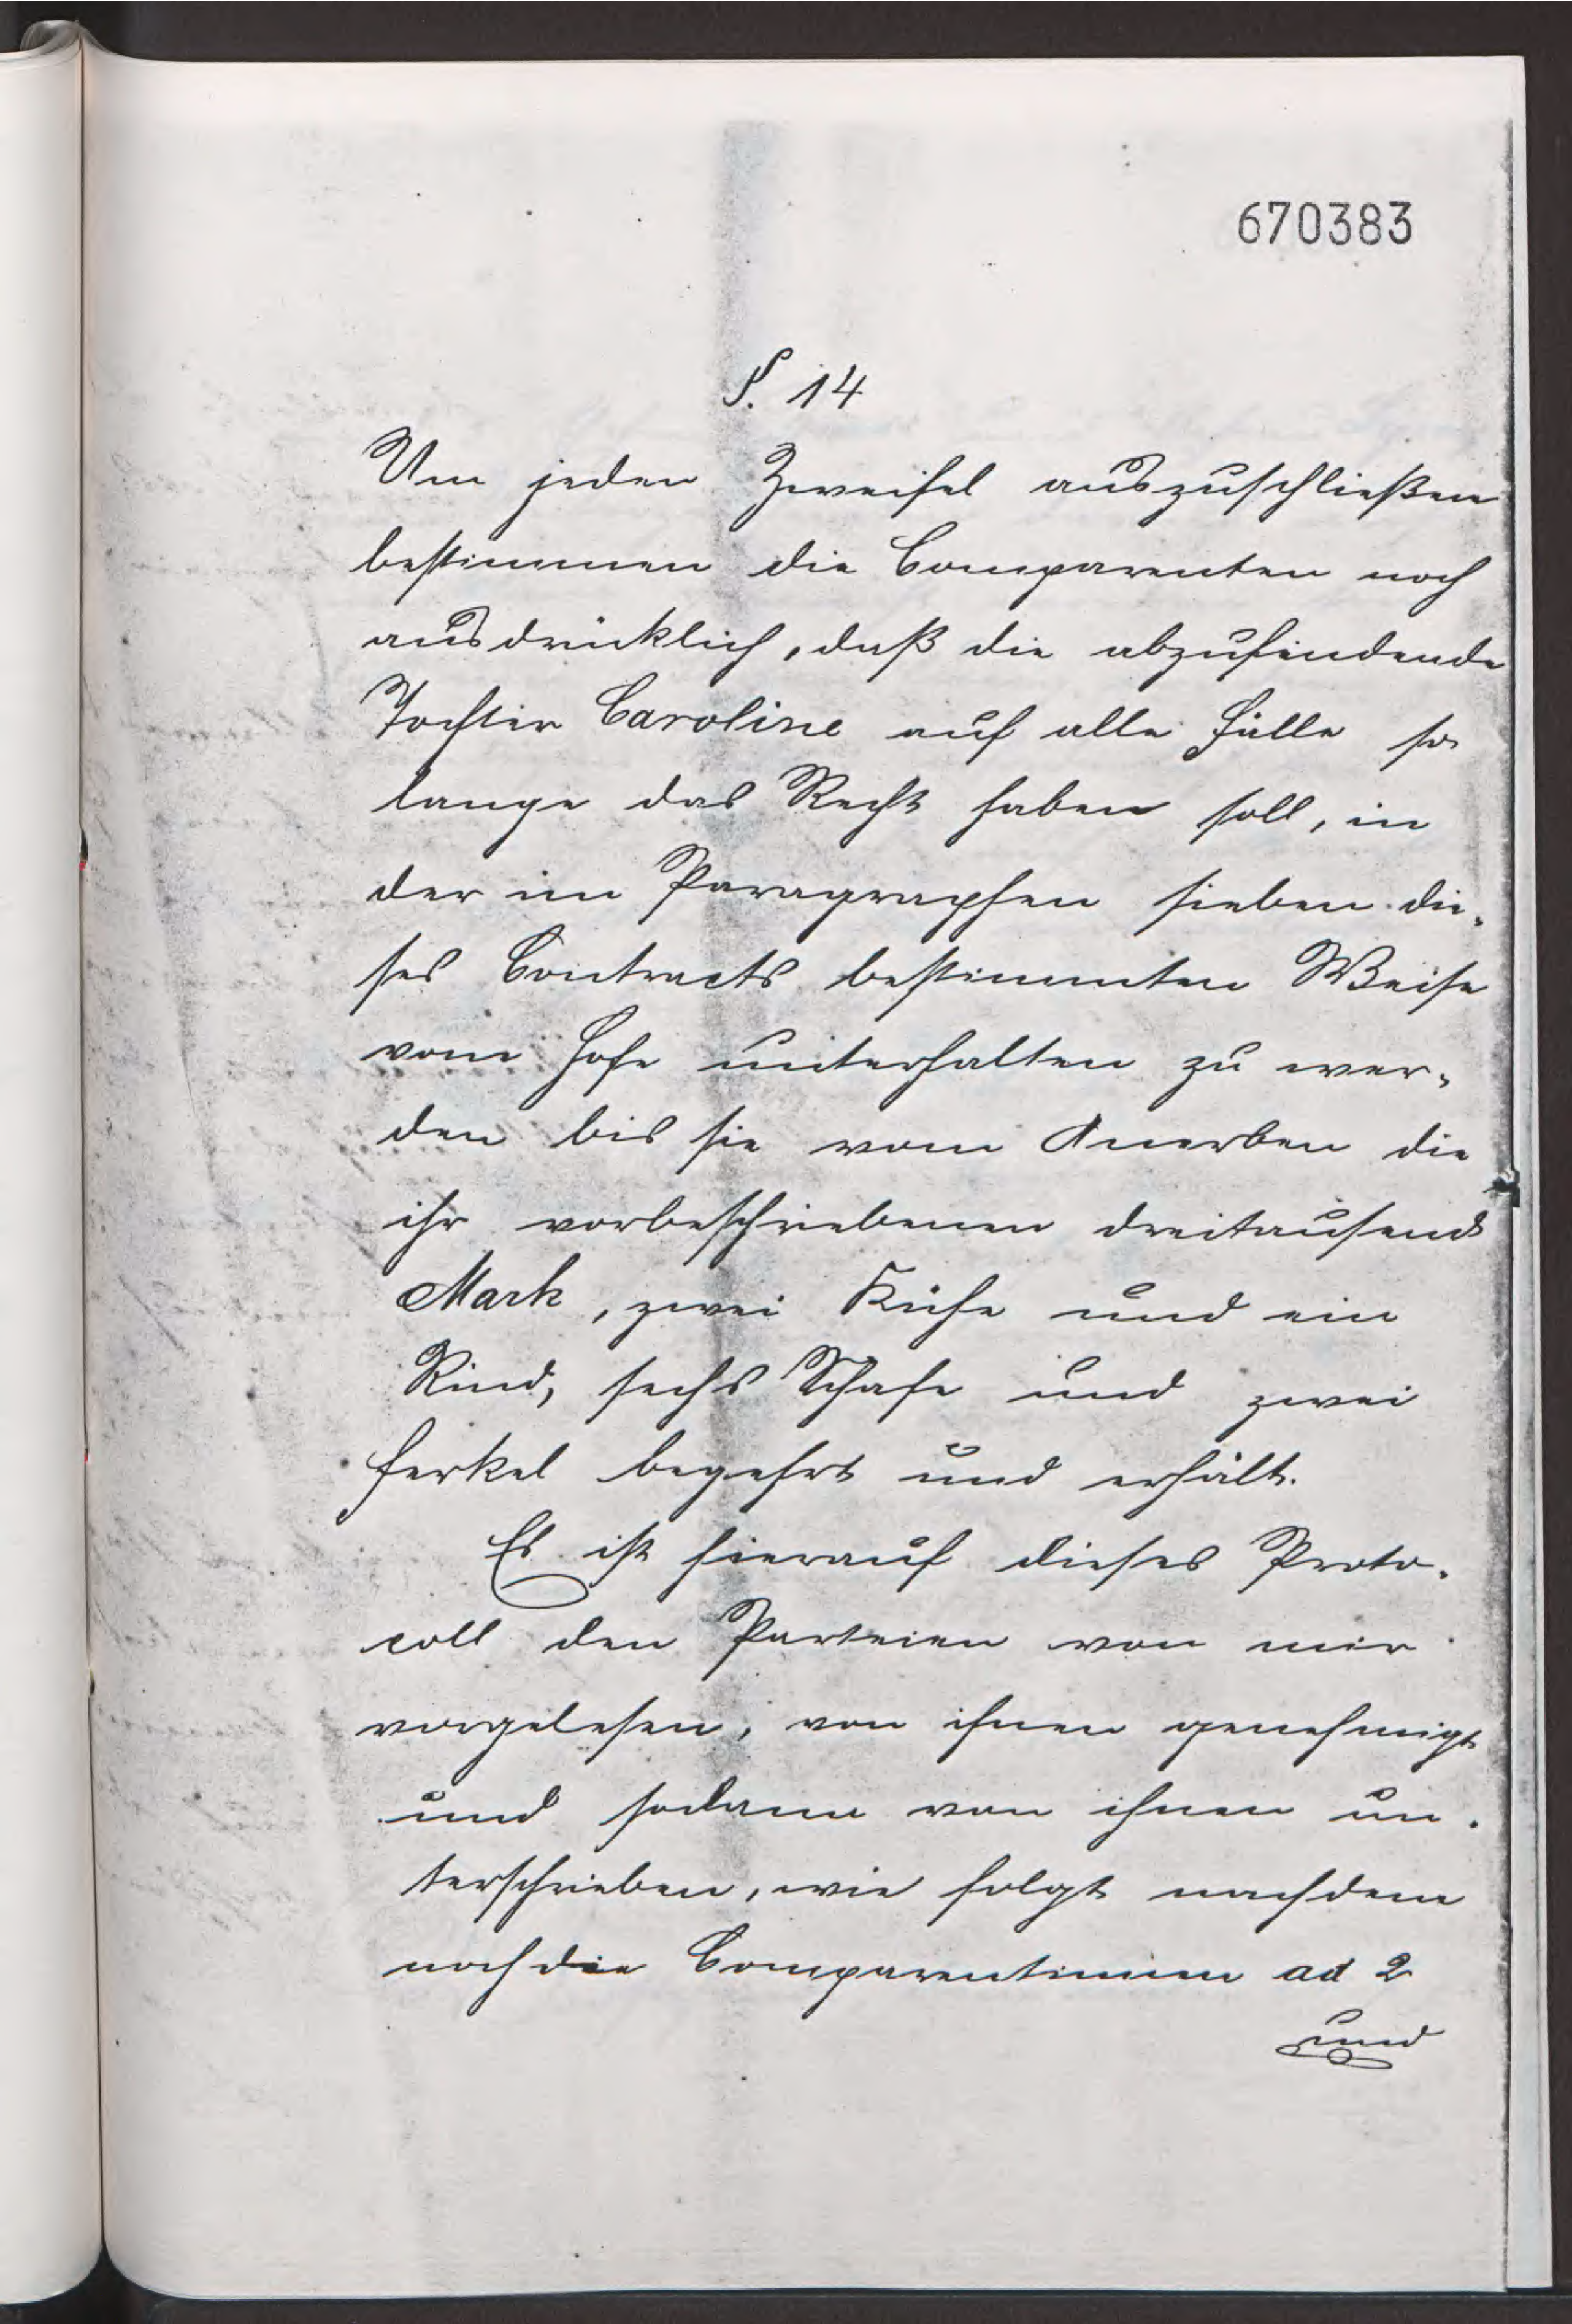 670383
§. 14
Um jeden Zweifel auszuschließen
bestimmen die Comparenten noch
ausdrücklich, daß die abzufindende
Tochter Caroline auf alle Fälle so
lange das Recht haben soll, in
der im Paragraphen sieben die-
ses Contracts bestimmten Weise
vom Hofe unterhalten zu wer-
den bis sie vom Anerben die
ihr vorbeschriebenen dreitausend
Mark, zwei Kühe und ein
Rind, sechs Schafe und zwei
Ferkel begehrt und erhält.
Es ist hierauf dieses Proto-
coll den Parteien von mir
vorgelesen, von ihnen genehmigt
und sodann von ihnen un-
terschrieben, wie folgt nachdem
noch die Comparentinnen ad 2
und